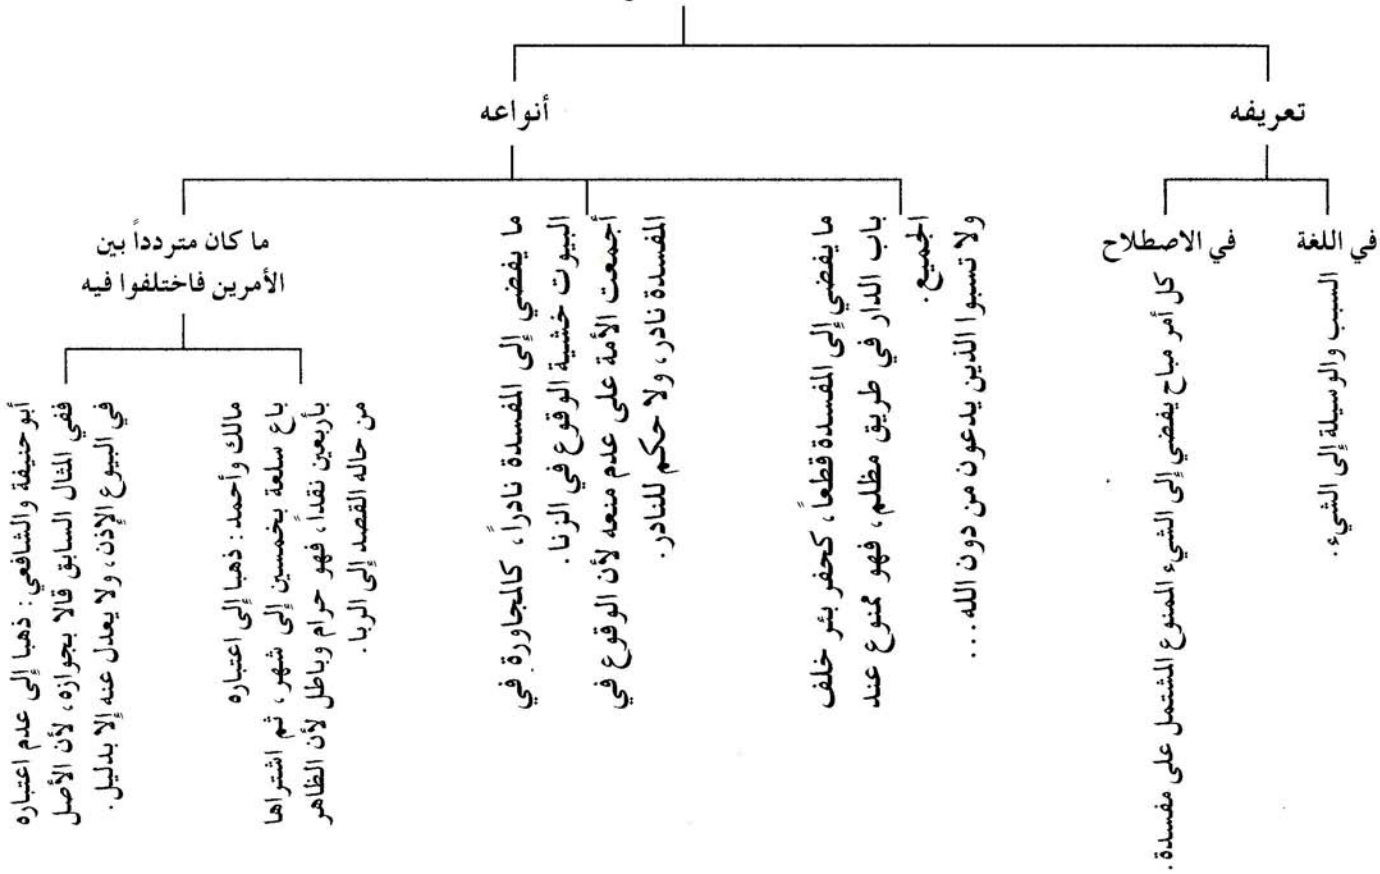 تعريفه
في اللغة
السبب والوسيلة إلى الشيء.
في الاصطلاح
كل أمر مباح يفضي إلى الشيء الممنوع المشتمل على مفسدة.
أنواعه
ما يفضي إلى المفسدة قطعاً، كحفر بئر خلف
باب الدار في طريق مظلم، فهو ممنوع عند
الجميع.
ولا تسبوا الذين يدعون من دون الله....
ما يفضي إلى المفسدة نادراً، كالمجاورة في
البيوت خشية الوقوع في الزنا.
أجمعت الأمة على عدم منعه لأن الوقوع في
المفسدة نادر، ولا حكم للنادر.
ما كان متردداً بين
الأمرين فاختلفوا فيه
مالك وأحمد: ذهبا إلى اعتباره
باع سلعة بخمسين إلى شهر، ثم اشتراها
بأربعين نقداً، فهو حرام وباطل لأن الظاهر
من حاله القصد إلى الربا.
أبو حنيفة والشافعي: ذهبا إلى عدم اعتباره
ففي المثال السابق قالا بجوازه، لأن الأصل
في البيوع الإذن، ولا يعدل عنه إلا بدليل.